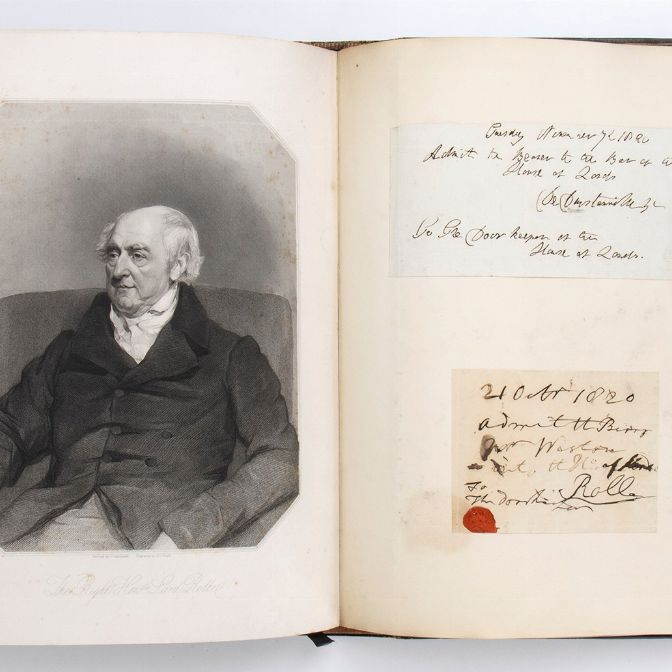 The Right Hon.ble Lord Rolle
Tuesday 7th 1820
Admit the Bearer to the Bar of the
House of Lords
De Dunstanville &c
To the Door keeper of the
House of Lords.
21 Octr 1820
admit the Bearer
Mr Weston
the H. of
To Rolle
The Doorkeeper